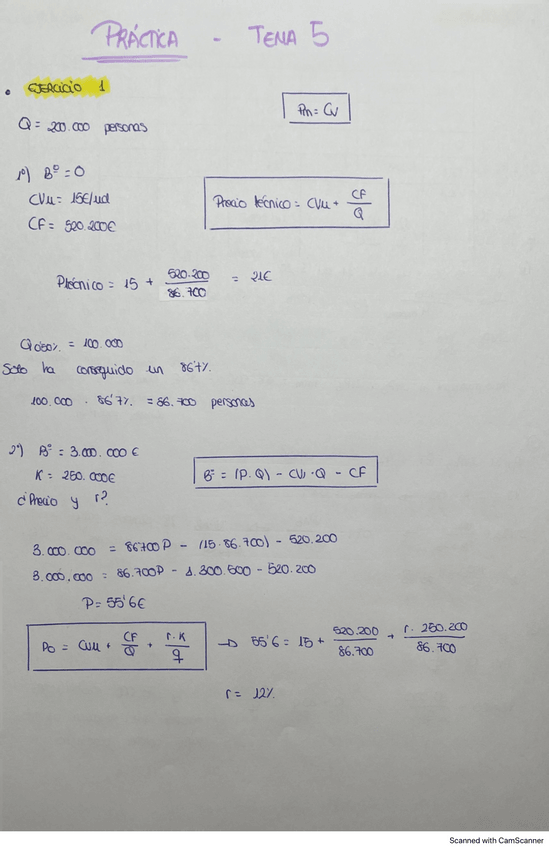 PRÁCTICA - TEMA 5
• EJERCICIO 1
Pm = CV
Q = 200.000 personas
1º) Bº = 0
CVu = 15€/ud
Precio técnico = CVu + CF/Q
CF = 520.200€
Ptécnico = 15 + 520.200/86.700 = 21€
Q050% = 100.000
Solo ha conseguido un 86'7%.
100.000 · 86'7% = 86.700 personas
2º) Bº = 3.000.000 €
K = 250.000€
Bº = (P·Q) - CVu·Q - CF
¿Precio y r?
3.000.000 = 86700P - (15·86.700) - 520.200
3.000.000 = 86.700P - 1.300.500 - 520.200
P = 55'6€
Po = CVu + CF/Q + r·K/q → 55'6 = 15 + 520.200/86.700 + r·250.200/86.700
r = 12%
Scanned with CamScanner